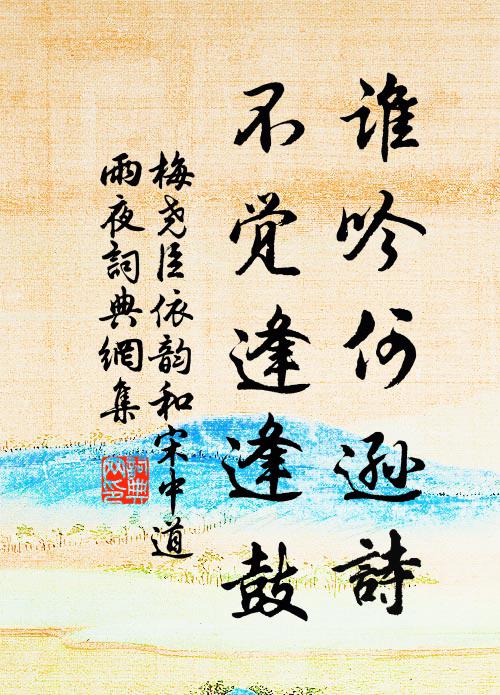 谁吟何逊詩
不觉逢逢鼓
梅尧臣依韵和宋中道
雨夜詞典網集
詞典